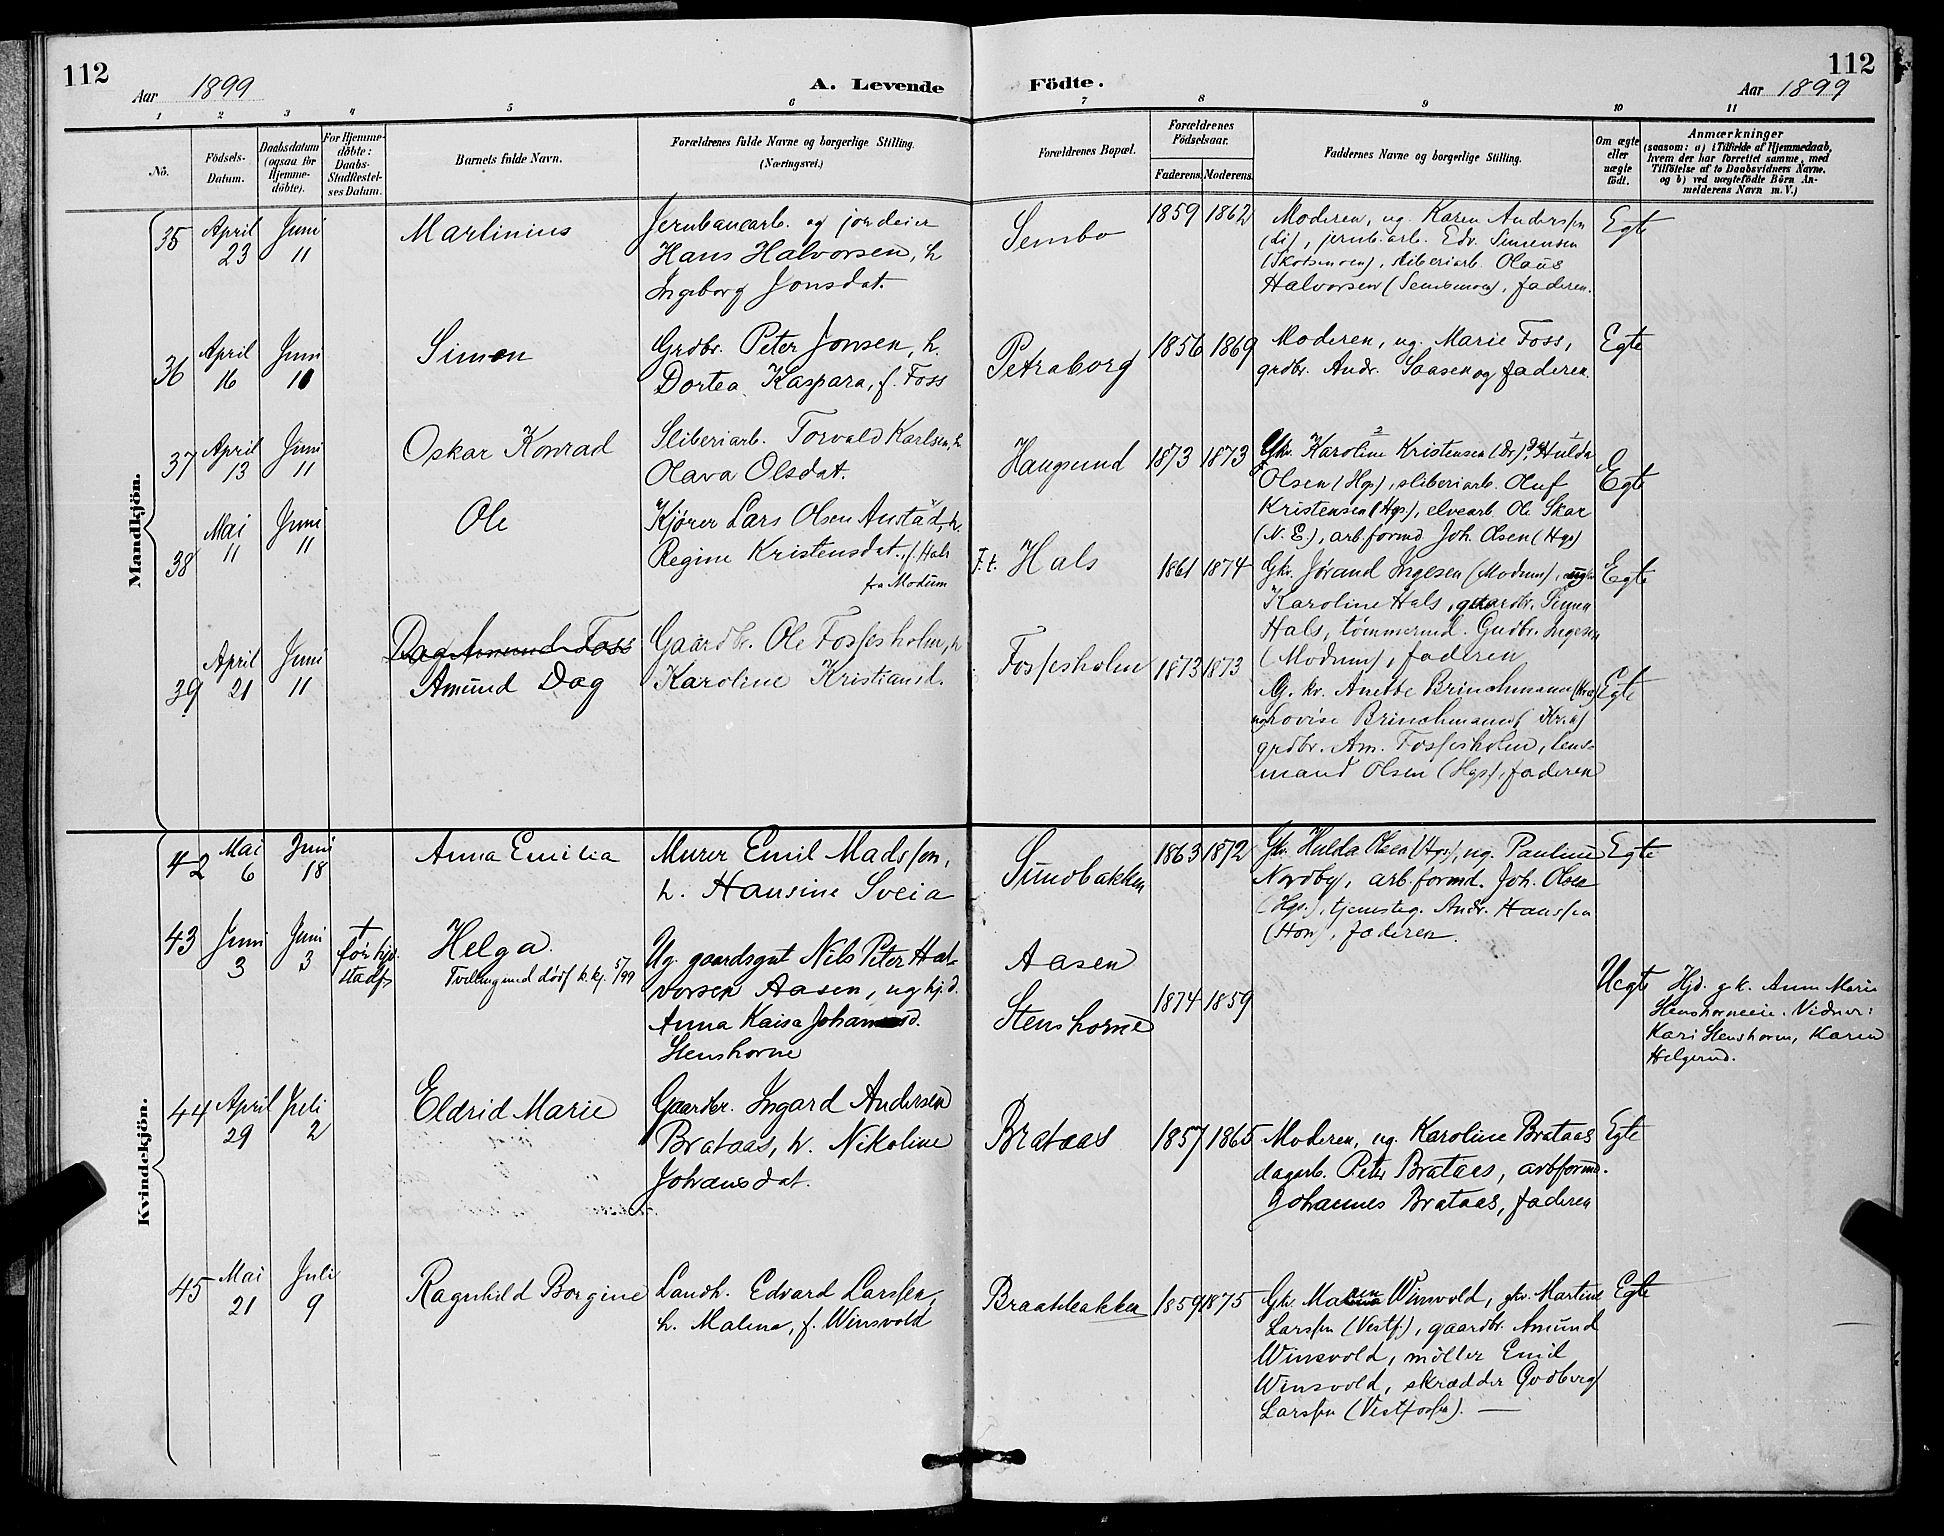 112
Aar 1899
A. Levende
Födte.
Aar 1899
112
1 2 3 4 5 6 7 8 9 10 11
No.
Födsels-
Datum.
Daabsdatum
(ogsaa for
Hjemme-
döbte).
For Hjemme-
döbte:
Daabs-
Stadfæstel-
ses Datum.
Barnets fulde Navn.
Forældrenes fulde Navne og borgerlige Stilling.
(Næringsvei.)
Forældrenes Bopæl.
Forældrenes
Födselsaar.
Faderens. Moderens.
Faddernes Navne og borgerlige Stilling.
Om ægte
eller
uægte
födt.
Anmærkninger
(saasom: a) i Tilfælde af Hjemmedaab,
hvem der har forrettet samme, med
Tilföielse af to Daabsvidners Navne.
og b) ved uægtefödte Börn An-
melderens Navn m. V.)
Mandkjön.
35
April
23
Juni
11
Martinius
Jernbanearb. og jordeier
Hans Halvorsen, h
Ingeborg Jonsdat.
Sembo
1859 1862
Moderen, ug. Karen Anderssen
(Li), jernb.arb. Edv. Simensen
(Skotsmoen), sliberiarb. Olaus
Halvorsen (Sembmoen), faderen.
Egte
36
April
16
Juni
11
Simen
Grdbr. Peter Jonsen, h.
Dortea Kaspara, f. Foss
Petraborg
1856 1869
Moderen, ug. Marie Foss,
grdbr. Andr. Saasen og faderen.
Egte
37
April
13
Juni
11
Oskar Konrad
Sliberiarb. Torvald Karlsen, h
Olava Olsdat.
Haugsund
1873 1873
Gkv. Karoline Kristensen (Dr), Hulda
Olsen (Hgs), sliberiarb. Oluf
Kristensen (Hgs), elvearb. Ole Skar
(N. E.), arb.formd Joh. Olsen (Hgs)
Egte
38
Mai
11
Juni
11
Ole
Kjører Lars Olsen Anstad, h.
Regine Kristensdat., f. Hals
fra Modum
F. t. Hals
1861 1874
Gkv. Jørand Ingesen (Modum), ug.
Karoline Hals, gaardbr. Simen
Hals, tømmermd. Gudbr. Ingesen
(Modum), faderen
Egte
39
April
21
Juni
11
Dag Amund Foss
Amund Dag
Gaardbr. Ole Fossesholm, h
Karoline Kristiansd.
Fossesholm
1873 1873
G. kv. Anette Brinchmann (Kr.a)
ug Lovise Brinchmann (Kr.a)
grdbr. Am. Fossesholm, lens-
mand Olsen (Hgs), faderen
Egte
Kvindekjön.
42
Mai
6
Juni
18
Anna Emilia
Murer Emil Madssen,
h. Hansine Sveia
Sundbakken
1863 1872
Gkv. Hulda Olsen (Hgs), ug. Pauline
Nordby, arb.formd. Joh. Olsen
(Hgs.), tjensteg. Andr. Hanssen
(Hon), faderen.
Egte
43
Juni
3
Juni
3
†
før hjd.
stadf.
Helga.
Tvilling med dødf. 5/7 99
Ug. gaardsgut Nils Peter Hal-
vorsen Aasen, ug hj.d.
Anna Kaisa Johannesd.
Stenshorne
Aasen
Stenshorne
1874 1859
Uegte
Hjd. g.k. Anne Marie
Stenshorneeie. Vidner:
Kari Stenshorn, Karen
Helgerud.
44
April
29
Juli
2
Eldrid Marie
Gaardbr. Ingard Andersen
Brataas, h. Nikoline
Johansdat.
Brataas
1857 1865
Moderen, ug. Karoline Brataas
dagarb. Peter Brataas, arbformd.
Johannes Brataas, faderen
Egte
45
Mai
21
Juli
9
Ragnhild Borgine
Landh. Edvard Larssen,
h. Malena, f. Winsvold
Braatebakken
1859 1875
Gkv. Maren Winsvold, gkv. Martine
Larssen (Vestf.), gaardbr. Amund
Winsvold, møller Emil
Winsvold, skrædder Gudberg
Larssen (Vestfossen). —
Egte